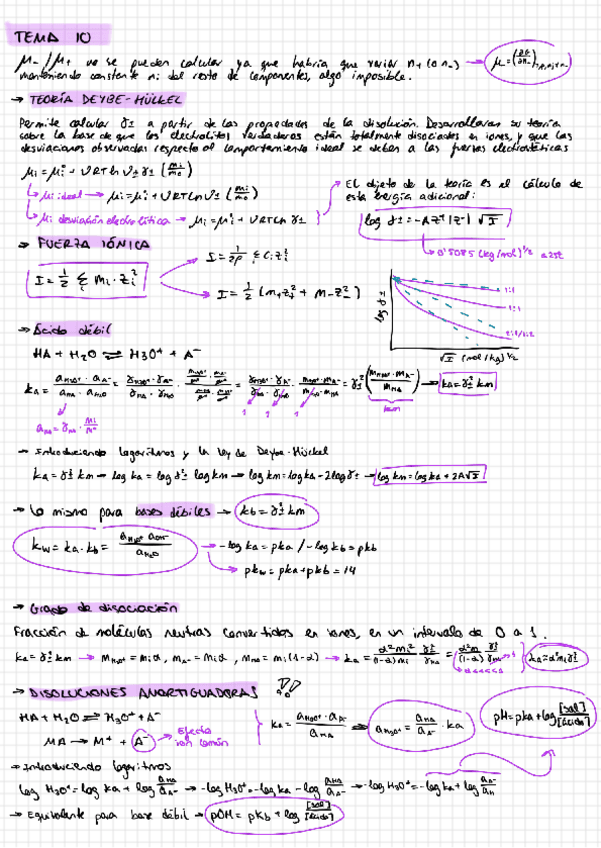 TEMA 10
μ₋ / μ₊ no se pueden calcular ya que habría que variar n₊ (o n₋) → μ₋ = (∂G/∂n₋)
manteniendo constante nᵢ del resto de componentes, algo imposible.
→ TEORÍA DEYBE-HÜCKEL
Permite calcular γ± a partir de las propiedades de la disolución. Desarrollaron su teoría
sobre la base de que los electrolitos verdaderos están totalmente disociados en iones, y que las
desviaciones observadas respecto al comportamiento ideal se deben a las fuerzas electrostáticas
μi = μi° + νRTLn ν± γ± (mi/m°)
μi ideal → μi = μi° + νRTLn ν± (mi/m°)
μi desviación electrolítica → μi = μi° + νRTLn γ±
→ El objeto de la teoría es el cálculo de
esta energía adicional:
log γ± = -A z⁺ |z⁻| √I
→ 0'5085 (kg/mol)^1/2 a 25°C
→ FUERZA IÓNICA
I = 1/2 Σ mi · zi²
I = 1/2ρ Σ ci zi²
I = 1/2 (m₊z₊² + m₋z₋²)
log γ±
1:1
1:1
√I (mol/kg)^1/2
→ Ácido débil
HA + H2O ⇌ H3O⁺ + A⁻
ka = (aH3O⁺ · aA⁻)/(aHA · aH2O) = (γH3O⁺ · γA⁻)/(γHA · γH2O) · = γ±² (mH3O⁺ · mA⁻ / mHA) → ka = γ±² km
km
aHA = γHA · mi/m°
→ Introduciendo logaritmos y la ley de Deybe-Hückel
ka = γ±² km → log ka = log γ±² log km → log km = log ka - 2log γ± → log km = log ka + 2A√I
→ Lo mismo para bases débiles → kb = γ±² km
kw = ka · kb = (aH3O⁺ aOH⁻)/aH2O → -log ka = pka / -log kb = pkb
→ pkw = pka + pkb = 14
→ Grado de disociación
Fracción de moléculas neutras convertidas en iones, en un intervalo de 0 a 1.
ka = γ±² km → mH3O⁺ = miα, mA⁻ = miα, mHA = mi(1-α) → ka = α²mi²/(1-α)mi · γ±²/γHA = α²m/(1-α) · γ±²/γHA → ka = α²miγ±²
→ DISOLUCIONES AMORTIGUADORAS !!
HA + H2O ⇌ H3O⁺ + A⁻
MA → M⁺ + A⁻ → Efecto
ion común
ka = (aH3O⁺ · aA⁻)/aHA → aH3O⁺ = aHA/aA⁻ · ka
pH = pka + log [sal]/[ácido]
→ Introduciendo logaritmos
log H3O⁺ = log ka + log aHA/aA⁻ → -log H3O⁺ = -log ka - log aHA/aA⁻ → -log H3O⁺ = -log ka + log aA⁻/aH
→ Equivalente para base débil → pOH = pKb + log [sal]/[ácido]